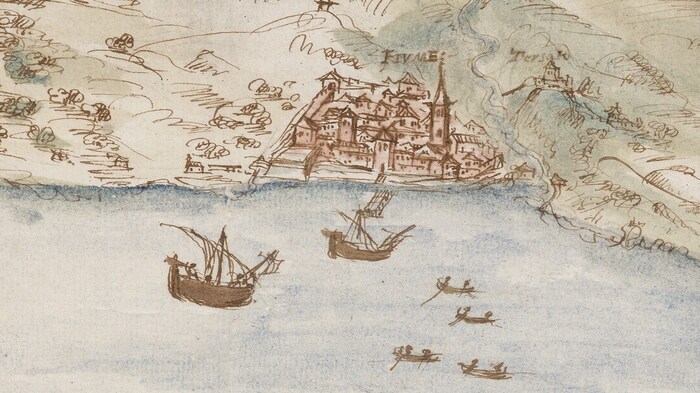 FIVME
Tersat